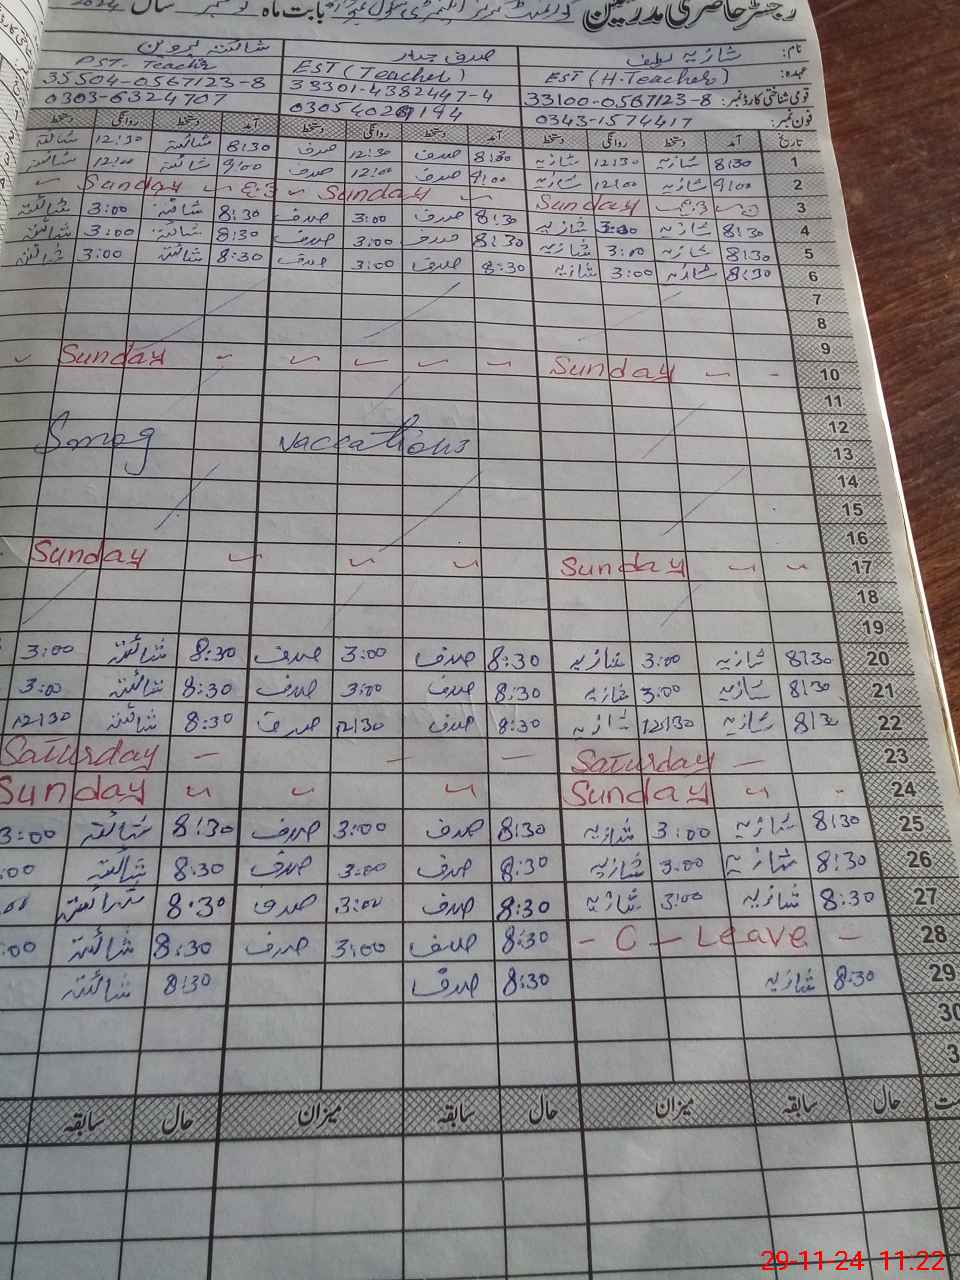 رجسٹر حاضری مدرسین
نام: شازیہ لطیف صدف جبار شائستہ پروین
عہدہ: EST (H-Teacher) EST (Teacher) PST. Teacher
قومی شناختی کارڈ نمبر: 33100-0567123-8 33301-4382447-4 35504-0567123-8
فون نمبر: 0343-1574417 0303-6324707
تاریخ آمد دستخط روانگی دستخط آمد دستخط روانگی دستخط آمد دستخط روانگی دستخط
1 8:30 شازیہ 12:30 شازیہ 8:30 صدف 12:30 صدف 8:30 شائستہ 12:30 شائستہ
2 9:00 شازیہ 12:00 شازیہ 9:00 صدف 12:00 صدف 9:00 شائستہ 12:00 شائستہ
3 Sunday Sunday Sunday
4 8:30 شازیہ 3:00 شازیہ 8:30 صدف 3:00 صدف 8:30 شائستہ 3:00 شائستہ
5 8:30 شازیہ 3:00 شازیہ 8:30 صدف 3:00 صدف 8:30 شائستہ 3:00 شائستہ
6 8:30 شازیہ 3:00 شازیہ 8:30 صدف 3:00 صدف 8:30 شائستہ 3:00 شائستہ
7
8
9
10 Sunday Sunday
11
12
13 Smog Vaccations
14
15
16
17 Sunday Sunday
18
19
20 8:30 شازیہ 3:00 شازیہ 8:30 صدف 3:00 صدف 8:30 شائستہ 3:00
21 8:30 شازیہ 3:00 شازیہ 8:30 صدف 3:00 صدف 8:30 شائستہ 3:00
22 8:30 شازیہ 12:30 شازیہ 8:30 صدف 12:30 صدف 8:30 شائستہ 12:30
23 Saturday Saturday
24 Sunday Sunday
25 8:30 شازیہ 3:00 شازیہ 8:30 صدف 3:00 صدف 8:30 شائستہ 3:00
26 8:30 شازیہ 3:00 شازیہ 8:30 صدف 3:00 صدف 8:30 شائستہ :00
27 8:30 شازیہ 3:00 شازیہ 8:30 صدف 3:00 صدف 8:30 شائستہ
28 - C - Leave - 8:30 صدف 3:00 صدف 8:30 شائستہ :00
29 8:30 شازیہ 8:30 صدف 8:30 شائستہ
30
3
حال سابقہ میزان حال سابقہ میزان حال سابقہ
29-11-24 11.22